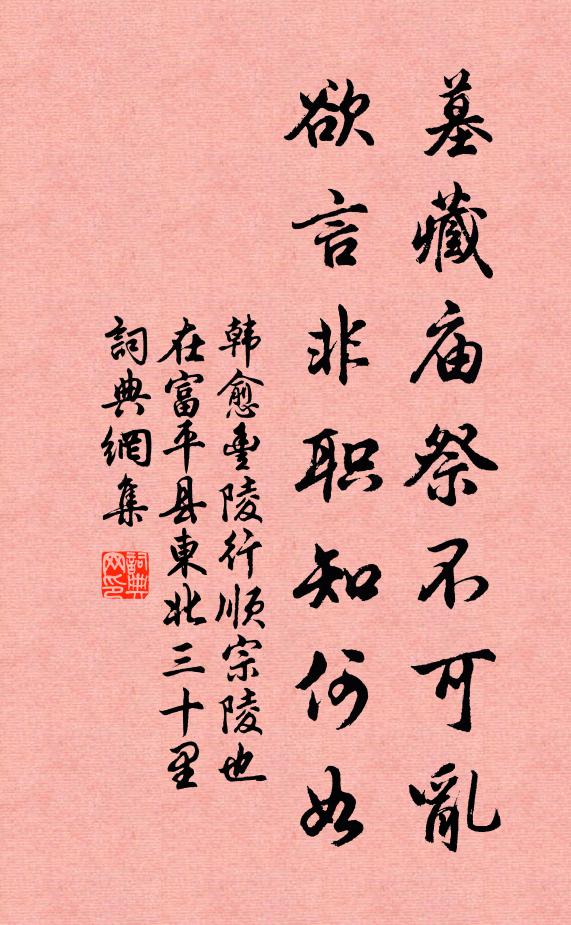 墓藏庙祭不可亂
欲言非职知何如
韩愈豊陵行順宗陵也
在富平县東北三十里
詞典網集
詞典
网印